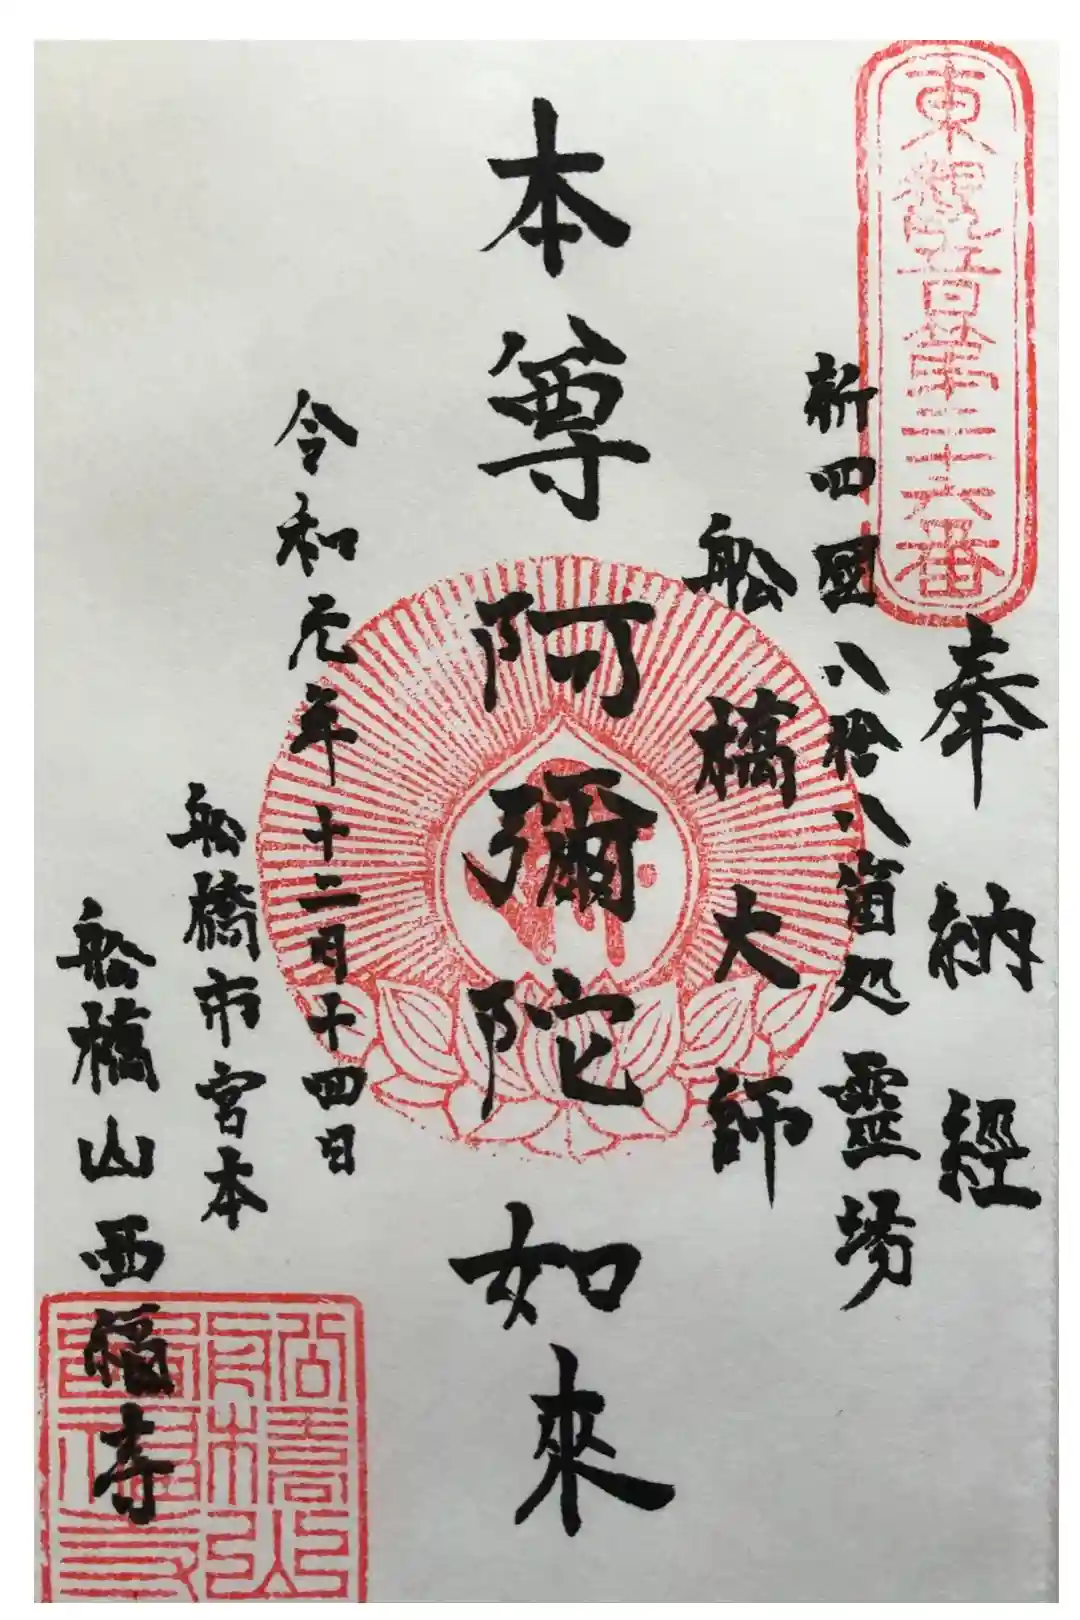 奉納經
新四國八拾八箇処靈場
船橋大師
本尊阿彌陀如來
令和元年十二月十四日
船橋市宮本
船橋山西福寺